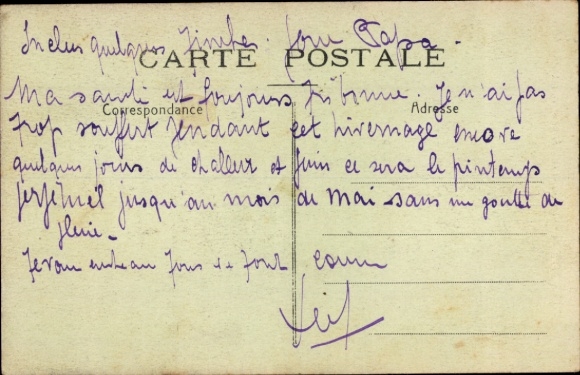 Inclus quelques timbres pour Papa.
CARTE POSTALE
Ma santé est toujours très bonne. Je n'ai pas
Correspondance
Adresse
trop souffert pendant cet hivernage encore
quelques jours de chaleur et puis ce sera le printemps
perpétuel jusqu'au mois de Mai sans une goutte de
pluie -
Je vous embrasse tous de tout coeur